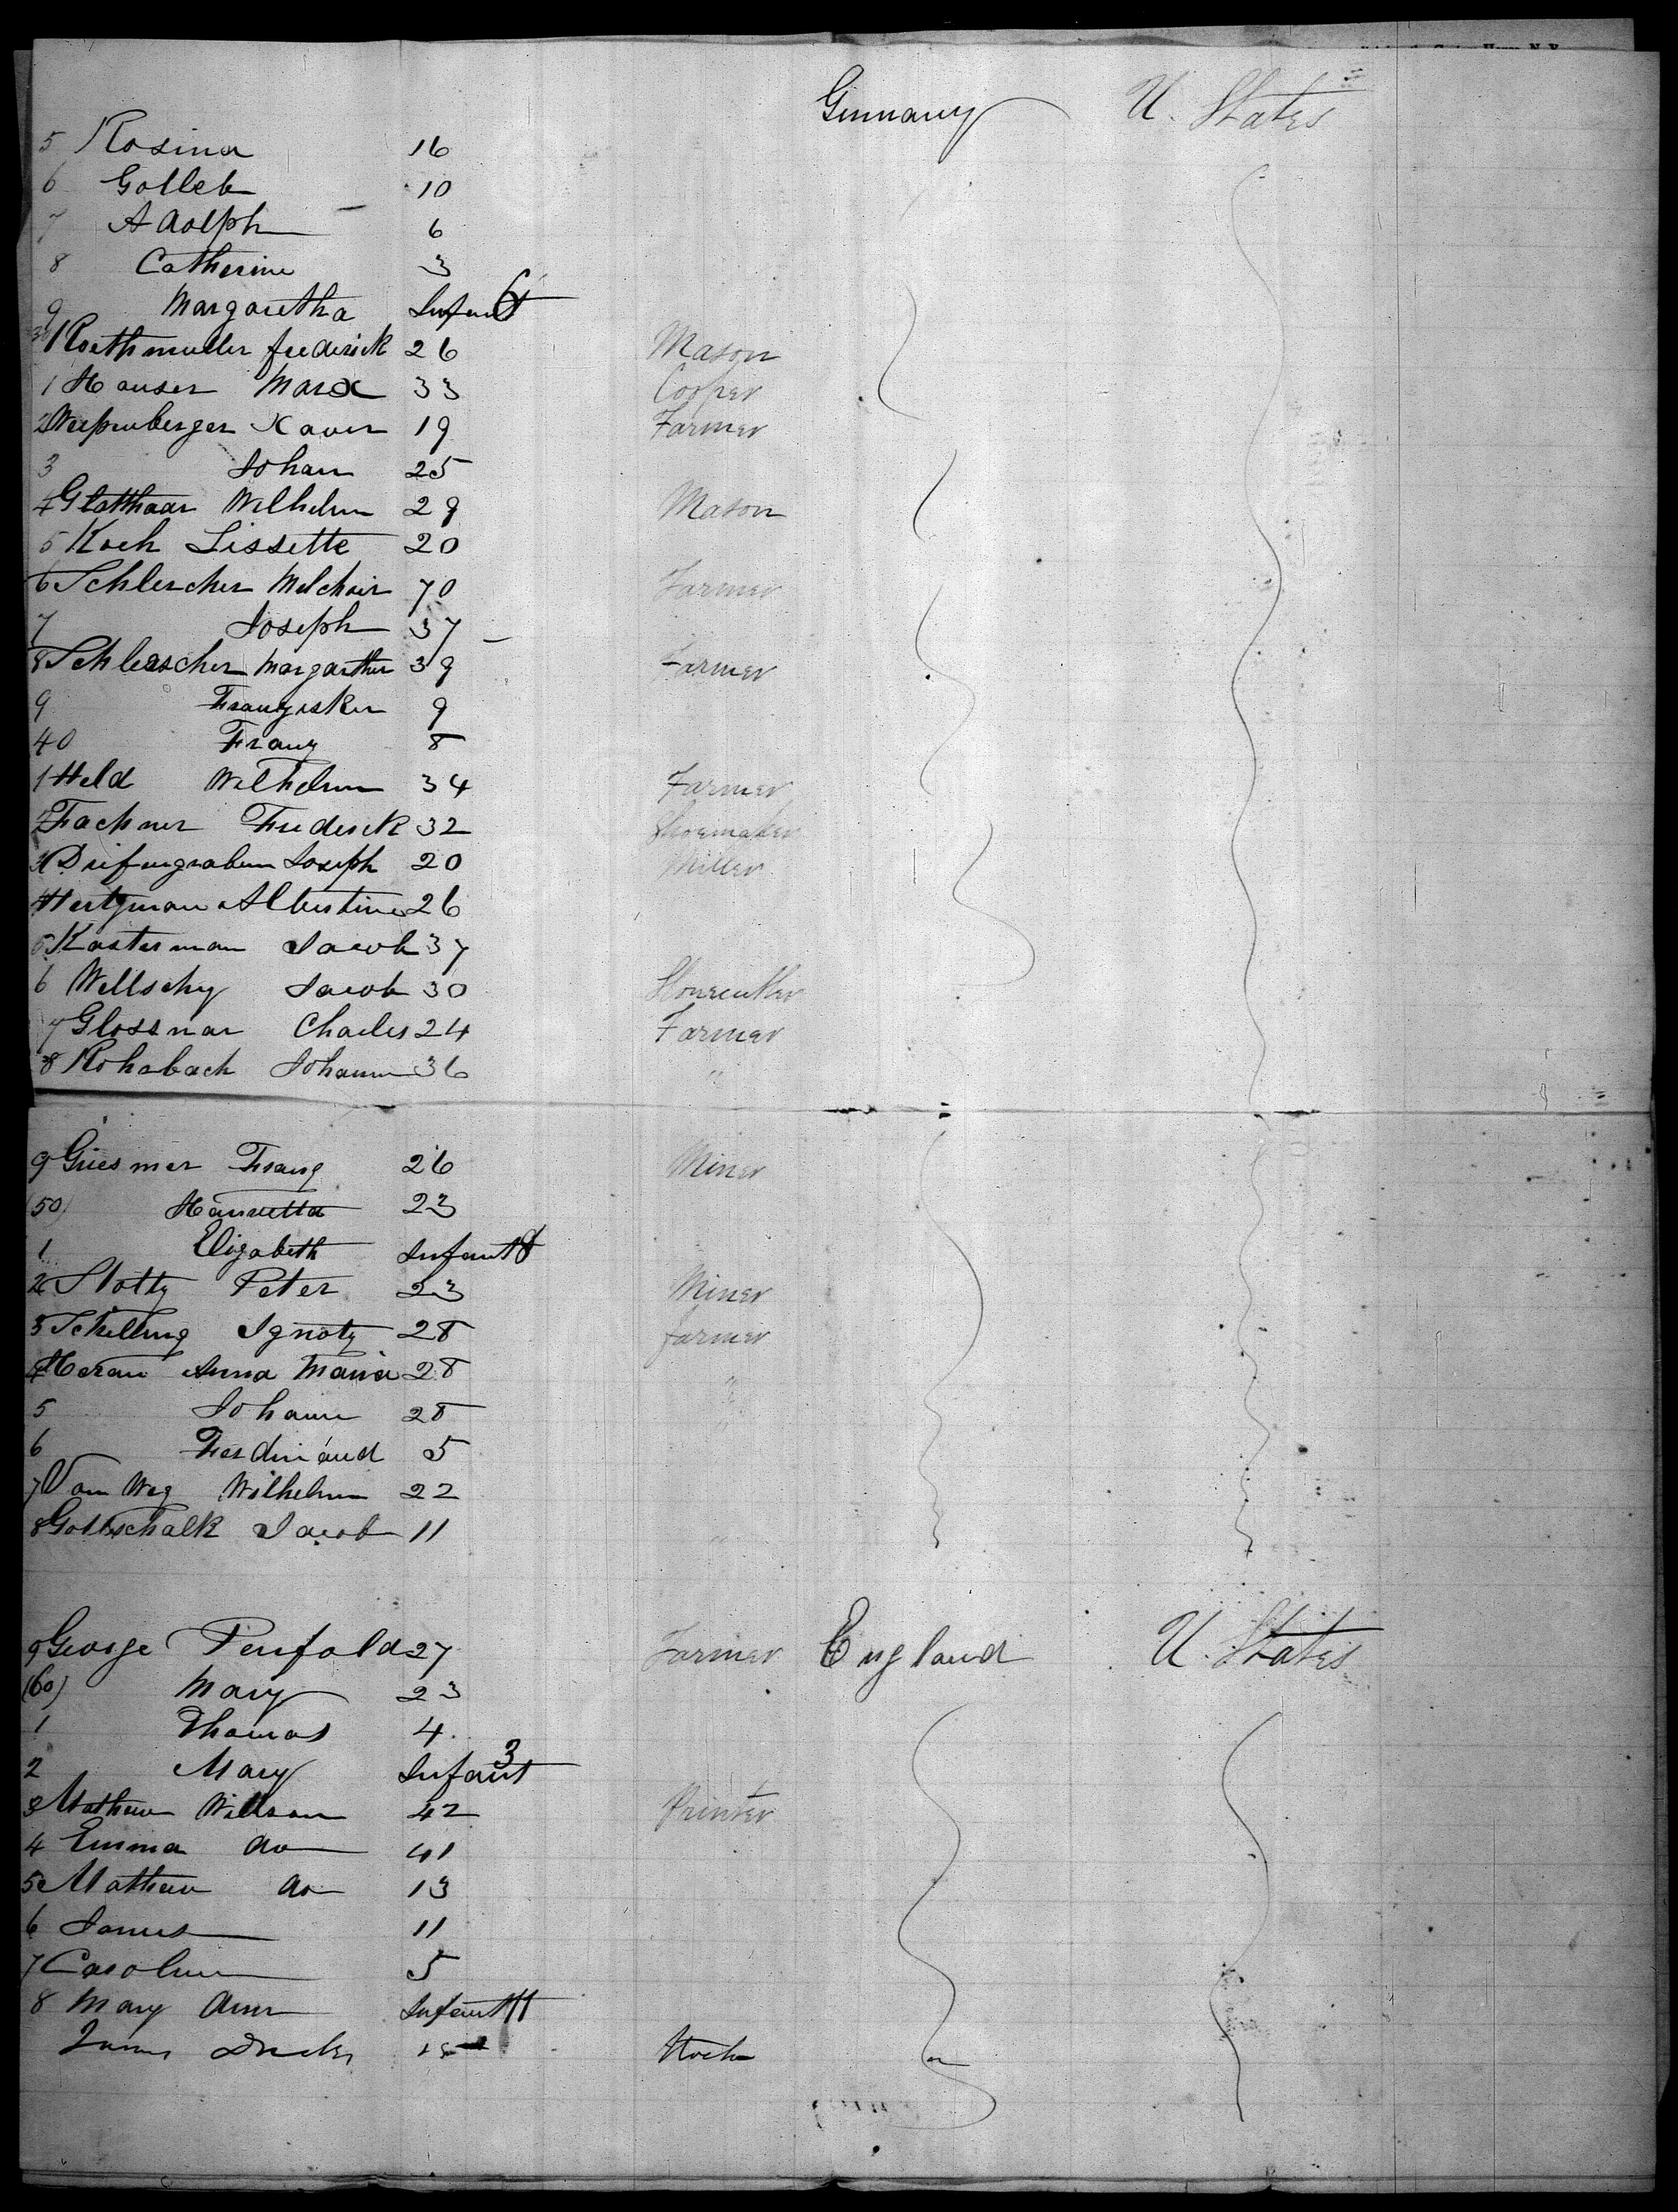 Germany U. States
5 Rosina 16
6 Gotleb 10
7 Adolph 6
8 Catherine 3
9 Margaretha Infant 6
30 Roethmuller frederick 26 Mason
1 Hauser Marx 33 Cooper
2 Xaver 19 Farmer
3 Johan 25
4 Glatthaar Wilhelm 29 Mason
5 Koch Lissette 20
6 Schlercher Melchoir 70 Farmer
7 Joseph 37
8 Schlerscher Margartha 39 Farmer
9 Franzisker 9
40 Franz 8
1 Held Wilhelm 34 Farmer
2 Fachner Frederick 32 Shoemaker
3 Joseph 20 Miller
4 Hertzman Albertine 26
5 Kasterman Jacob 37
6 Wellschy Jacob 30 Stonecutter
7 Glossmar Charles 24 Farmer
8 Rohrbach Johann 36 "
9 Giesmer Franz 26 Miner
(50) Hanrietta 23
1 Elizabeth Infant 8
2 Slotty Peter 23 Miner
3 Schilling Ignatz 28 farmer
4 Heran Anna Maria 28 "
5 Johann 28 "
6 Ferdinand 5
7 Vom Weg Wilhelm 22
8 Gottschalk Jacob 11 "
9 George Penfold 27 Farmer England U. States
(60) Mary 23
1 Thomas 4
2 Mary Infant 3
3 Mathew Willson 42 Printer
4 Emma do 41
5 Mathew do 13
6 James 11
7 Caroline 5
8 Mary Ann Infant 11
James